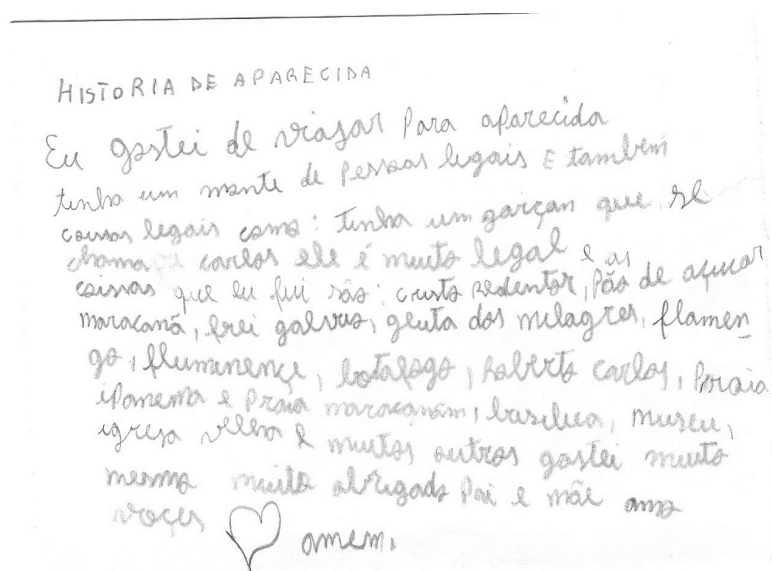 HISTORIA DE APARECIDA
Eu gostei de viajar Para aparecida
tinha um monte de Pessoas legais E tambem
coisas legais como: tinha um garçon que se
chama carlos ele é muito legal e as
coissas que eu fui são: cristo redentor, Pão de açucar
maracanã, frei galvus, gruta dos milagres, flamen
go, fluminençe, botafogo, Roberto carlos, Praia
ipamema e praia maracanãm, basilica, museu,
igreja velha e muitos outros gostei muito
mesmo muito obrigado Pai e mãe amo
voçes
amem.